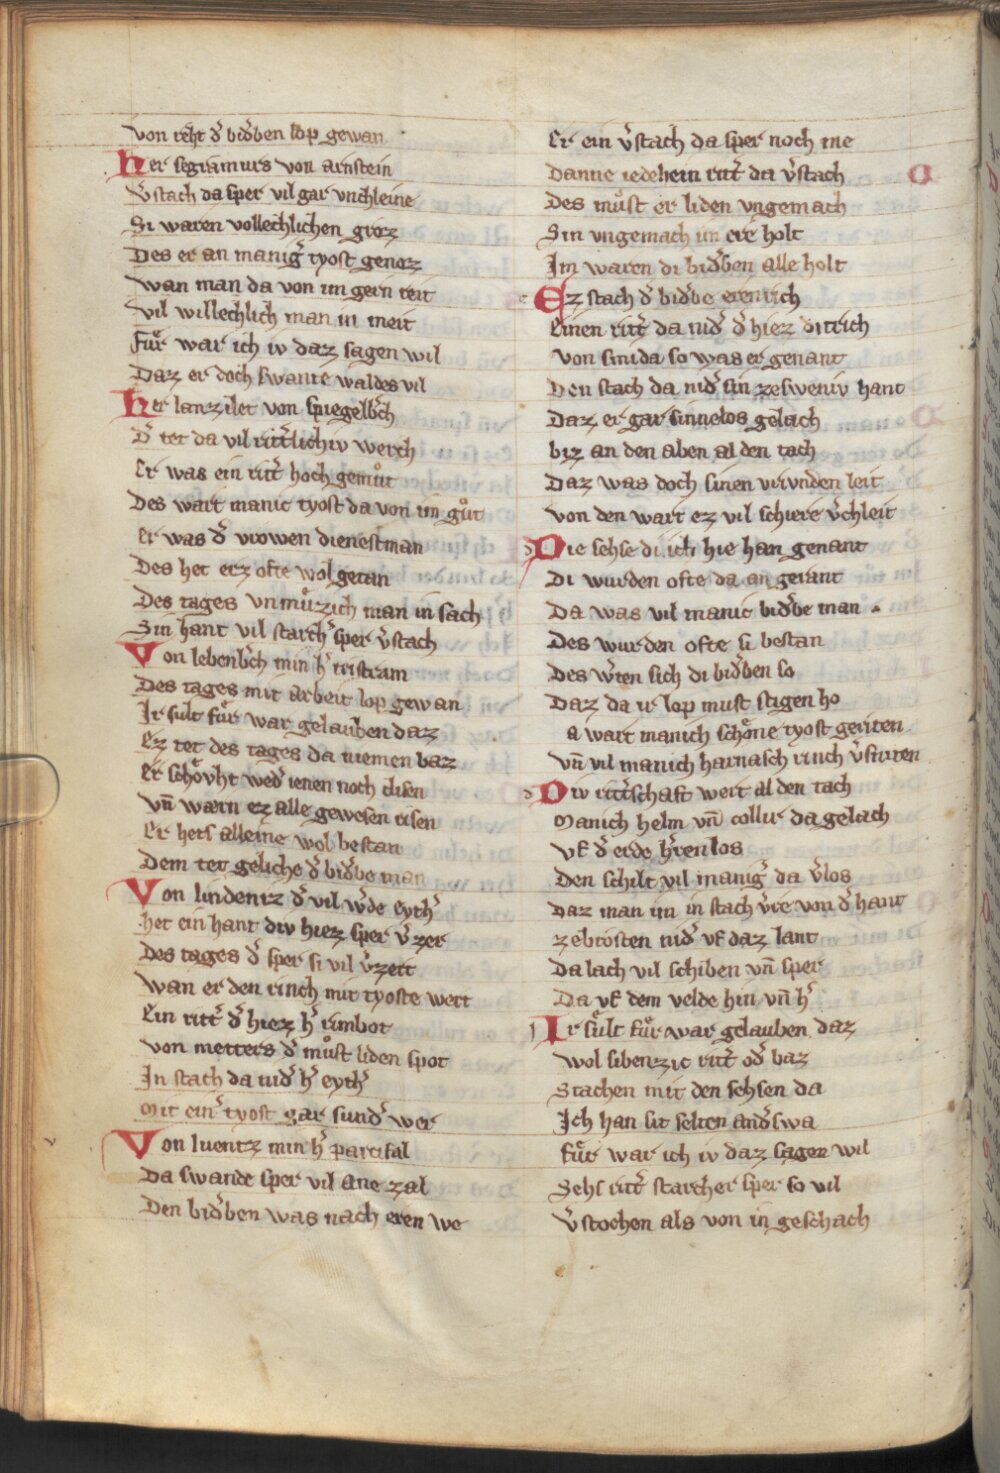 von reht d̾ bid̾ben lop gewan
Her segramurs von arnstein
v̾stach da sper vil gar vnchleine
Si waren vollechlichen groz
Des er an manig̾ tyost genoz
wan man da von im gern reit
vil willechlich man in meit
fuͤr war ich iv daz sagen wil
Daz er doch swante waldes vil
Her lanzilet von spiegelb̾ch
D̾ tet da vil ritt̾lichiv werch
Er was ein ritt̾ hoch gemuͦt
Des wart manic tyost da von im guͦt
Er was d̾ vrowen dienestman
Des het erz ofte wol getan
Des tages vnmuͤzich man in sach
Sin hant vil starch̾ sper v̾stach
Von lebenb̾ch min h̾ tristram
Des tages mit arbeit lop gewan
Ir sult fuͤr war gelauben daz
Ez tet des tages da niemen baz
Er schoͤvht wed̾ ienen noch disen
vn̄ wærn ez alle gewesen risen
Er hets alleine wol bestan
Dem tet geliche d̾ bid̾be man
Von lindentz d̾ vil w̾de eyth̾
het ein hant div hiez sper v̾zer
Des tages d̾ sper si vil v̾zert
wan er den rinch mit tyoste wert
Ein ritt̾ d̾ hiez h̾ rimbot
von metters d̾ muͦst liden spot
In stach da nid̾ h̾ eyth̾
Mit ein̾ tyost gar sund̾ wer
Von luentz min h̾ parcifal
Da swande sper vil ane zal
Den bid̾ben was nach eren we
Er ein v̾stach da sper noch me
Danne iedehein ritt̾ da v̾stach
Des muͦst er liden vngemach
Sin vngemach im ere holt
Im waren di bid̾ben alle holt
Ez stach d̾ bid̾be erenrich
Einen ritt̾ da nid̾ d̾ hiez ditrich
von smida so was er genant
Den stach da nid̾ sin zesweniv hant
Daz er gar sinnelos gelach
biz an den aben al den tach
Daz was doch sinen vrivnden leit
von den wart ez vil schiere v̾chleit
Die sehse di ich hie han genant
Di wurden ofte da an gerant
Da was vil manic bid̾be man
Des wurden ofte si bestan
Des w̾ten sich di bid̾ben so
Daz da ir lop must stigen ho
a wart manich schoͤne tyost geriten
vn̄ vil manich harnasch rinch v̾sniten
Div ritt̾schaft wert al den tach
Manich helm vn̄ collir da gelach
vf d̾ erde h̾renlos
Den schilt vil manig̾ da v̾los
Daz man im in stach v̾re von d̾ hant
zebrosten nid̾ vf daz lant
Da lach vil schiben vn̄ sper
Da vf dem velde hin vn̄ h̾
Ir suͤlt fuͤr war gelauben daz
wol sibenzic ritt̾ od̾ baz
Stachen mit den sehsen da
Ich han sit selten and̾swa
fuͤr war ich iv daz sagen wil
Sehs ritt̾ starcher sper so vil
v̾stochen als von in geschach